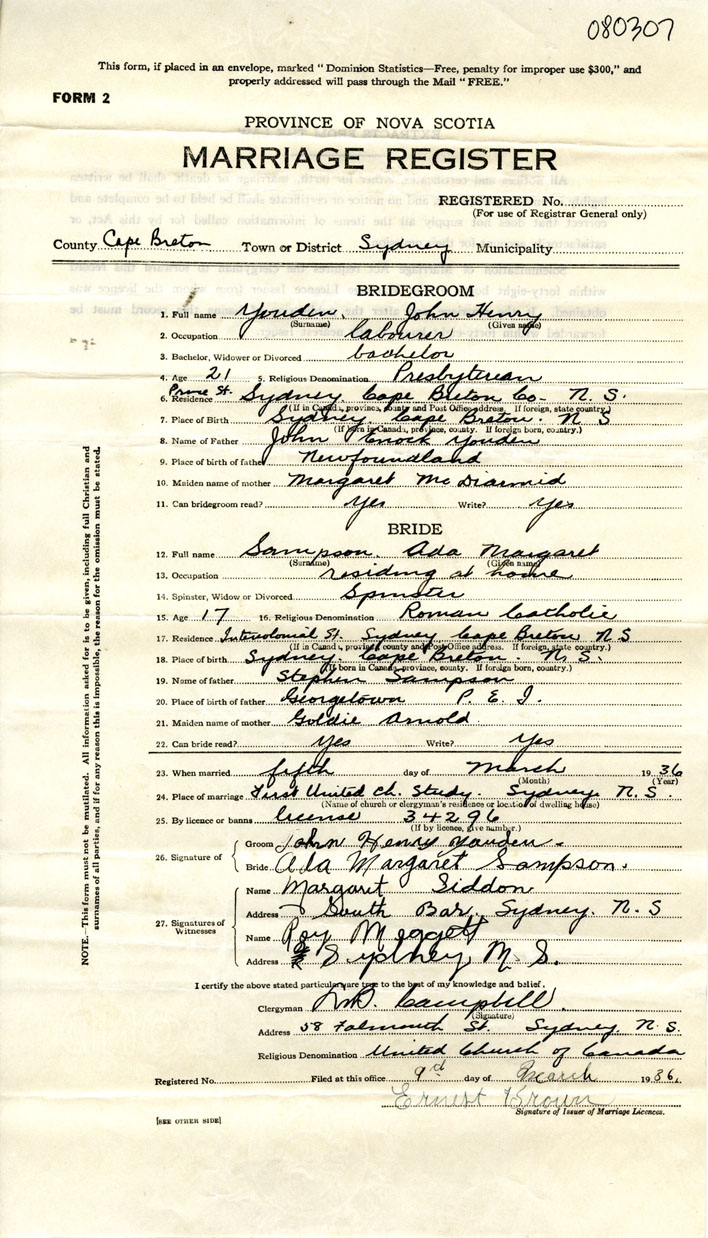 080307
This form, if placed in an envelope, marked "Dominion Statistics—Free, penalty for improper use $300," and
properly addressed will pass through the Mail "FREE."
FORM 2
PROVINCE OF NOVA SCOTIA
MARRIAGE REGISTER
REGISTERED No.
(For use of Registrar General only)
County Cape Breton Town or District Sydney Municipality
BRIDEGROOM
1. Full name Youden, John Henry
(Surname) (Given name)
2. Occupation labourer
3. Bachelor, Widower or Divorced bachelor
4. Age 21 5. Religious Denomination Presbyterian
6. Residence Prince St. Sydney Cape Breton Co. N. S.
(If in Canada, province, county and Post Office address. If foreign, state country.)
7. Place of Birth Sydney, Cape Breton. N S
(If born in Canada, province, county. If foreign born, country.)
8. Name of Father John Enock Youden
9. Place of birth of father Newfoundland
10. Maiden name of mother Margaret McDiarmid
11. Can bridegroom read? yes Write? yes
BRIDE
12. Full name Sampson. Ada Margaret
(Surname) (Given name)
13. Occupation residing at home
14. Spinster, Widow or Divorced Spinster
15. Age 17 16. Religious Denomination Roman Catholic
17. Residence Intercolonial St. Sydney Cape Breton N S
(If in Canada, province, county and Post Office address. If foreign, state country.)
18. Place of birth Sydney. Cape Breton N. S.
(If born in Canada, province, county. If foreign born, country.)
19. Name of father Stephen Sampson
20. Place of birth of father Georgetown P. E. I.
21. Maiden name of mother Goldie Arnold
22. Can bride read? yes Write? yes
23. When married fifth day of March 1936
(Month) (Year)
24. Place of marriage First United Ch. Study. Sydney. N. S.
(Name of church or clergyman's residence or location of dwelling house)
25. By licence or banns license 34296
(If by licence, give number.)
26. Signature of
Groom John Henry Youden.
Bride Ada Margaret Sampson.
27. Signatures of Witnesses
Name Margaret Siddon
Address South Bar, Sydney. N. S
Name Roy Meggett
Address Sydney N. S.
I certify the above stated particulars are true to the best of my knowledge and belief,
Clergyman Campbell.
(Signature)
Address 58 Falmouth St. Sydney. N. S.
Religious Denomination United Church of Canada
Registered No. Filed at this office 9rd day of March 1936.
Ernest Brown
Signature of Issuer of Marriage Licences.
[SEE OTHER SIDE]
NOTE.—This form must not be mutilated. All information asked for is to be given, including full Christian and
surnames of all parties, and if for any reason this is impossible, the reason for the omission must be stated.